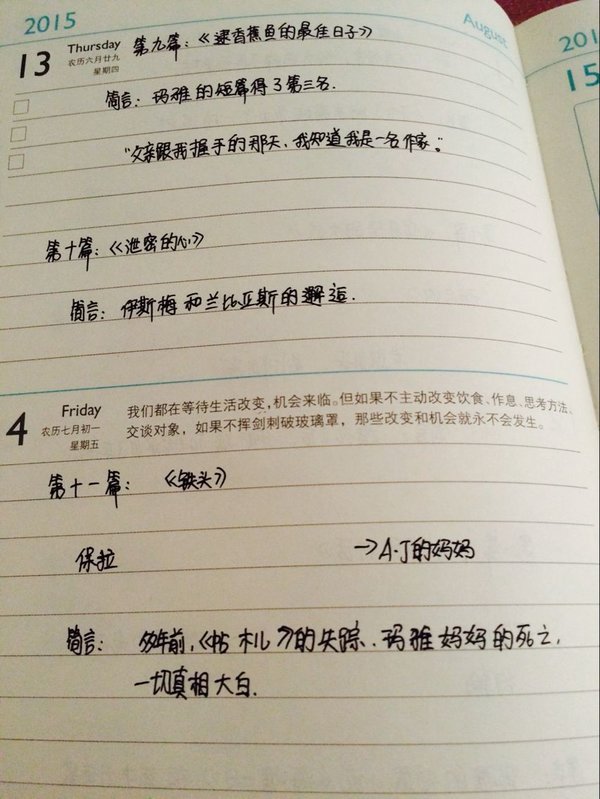 2015
August
13 Thursday 第九篇：《逮香蕉鱼的最佳日子》
农历六月廿九
星期四
简言：玛雅的短篇得了第三名.
“父亲跟我握手的那天，我知道我是一名作家。”
第十篇：《泄密的心》
简言：伊斯梅和兰比亚斯的邂逅.
4 Friday 我们都在等待生活改变，机会来临。但如果不主动改变饮食、作息、思考方法、
农历七月初一 交谈对象，如果不挥剑刺破玻璃罩，那些改变和机会就永不会发生。
星期五
第十一篇：《铁头》
保拉 →A·J的妈妈
简言：多年前，《帖木儿》的失踪、玛雅妈妈的死亡，
一切真相大白.
201
15